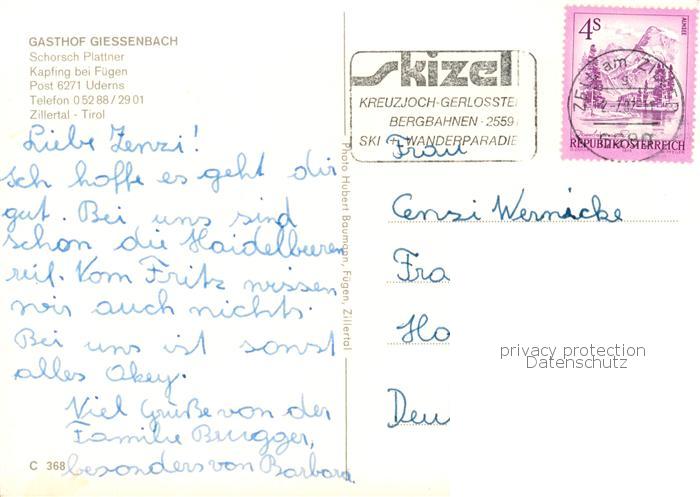 GASTHOF GIESSENBACH
Schorsch Plattner
Kapfing bei Fügen
Post 6271 Uderns
Telefon 0 52 88 / 29 01
Zillertal - Tirol
Liebe Zenzi!
Ich hoffe es geht dir
gut. Bei uns sind
schon die Haidelbeeren
reif. Vom Fritz wissen
wir auch nichts.
Bei uns ist sonst
alles Okey.
Viel Grüße von der
Familie Brugger,
besonders von Barbara
C 368
Photo Hubert Baumann, Fügen, Zillertal
skizel
KREUZJOCH-GERLOSSTEI
BERGBAHNEN · 2559
SKI + WANDERPARADIE
4 S
ALMSEE
REPUBLIK ÖSTERREICH
ZELL am ZILLER
Frau
Cenzi Wernicke
Fra
Ho
Deu
privacy protection
Datenschutz